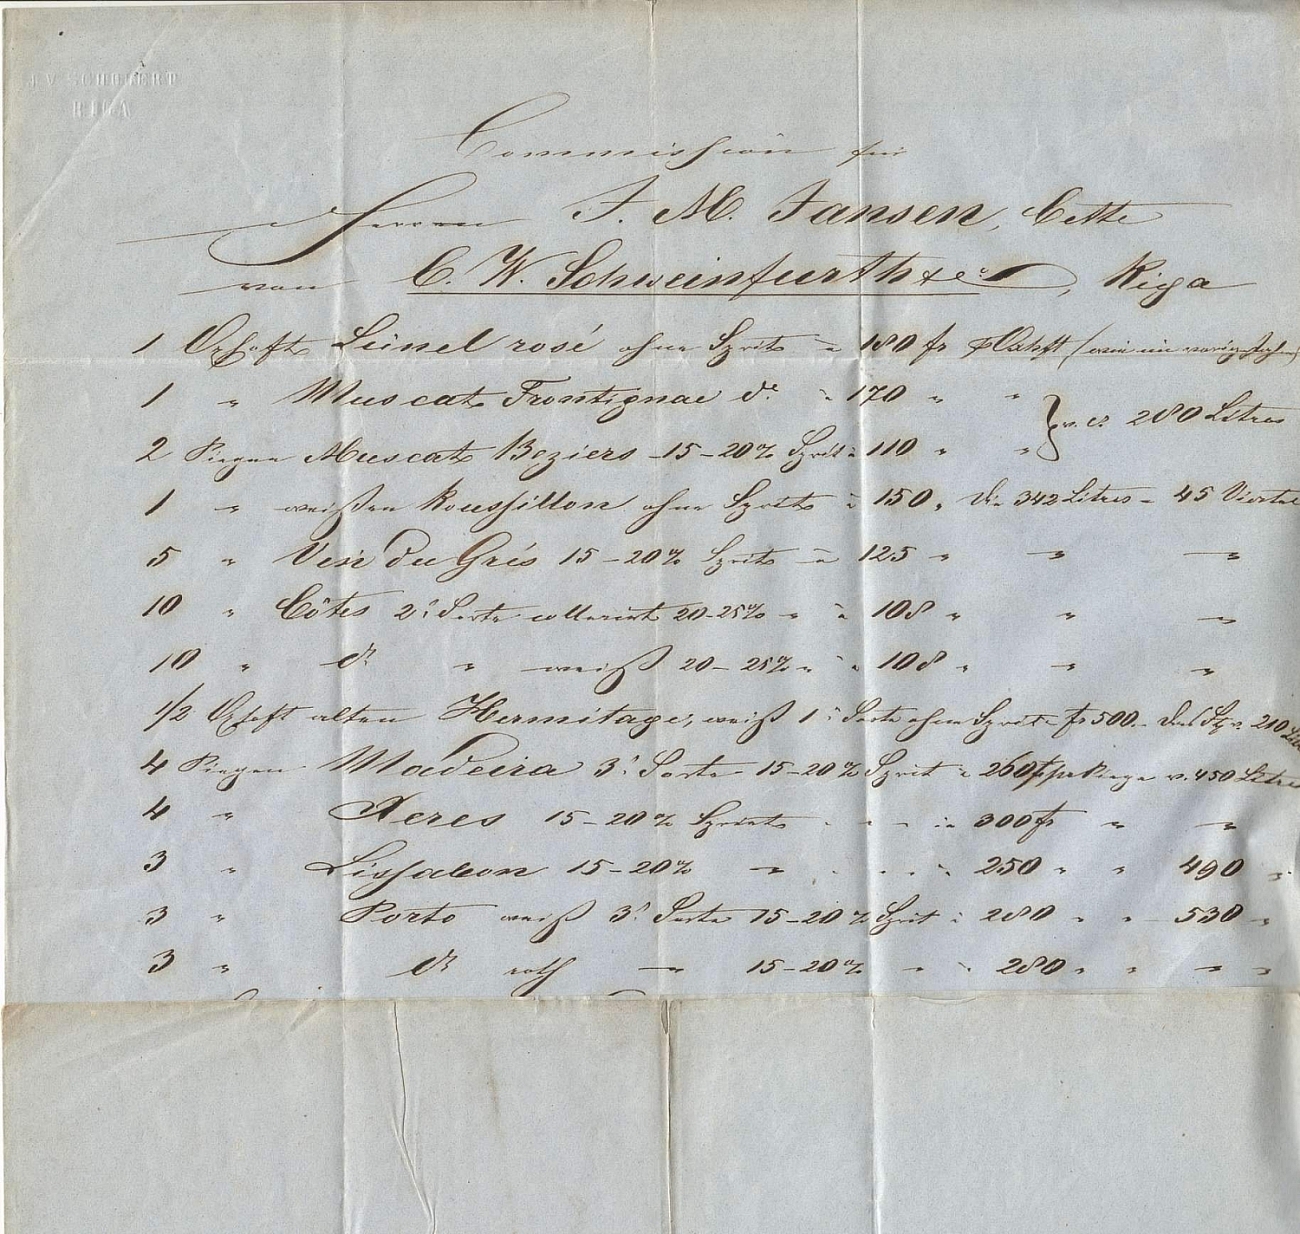 J. V. SCHUBERT
RIGA
Commission für
Herrn J. M. Jansen, Cette
von C. W. Schweinfurth & Co, Riga
1 Oxhoft Lünel rosé ohne Sprit à 180 fr p Oxhft (wie im vorig
1 " Muscat Frontignac do à 170 " "
} v. ca 280 Litres
2 Piepen Muscat Beziers 15-20% Sprit à 110 " "
1 " weißen Roussillon ohne Sprit à 150 " die 342 Litres = 45 Viertel
5 " Vin du Grés 15-20% Sprit à 125 " " "
10 " Côtes 2r Sorte collorirt 20-25% " à 108 " " "
10 " do " weiß 20-25% " à 108 " " "
1/2 Oxhoft alten Hermitage, weiß 1r Sorte ohne Sprit fr 500. 210 Litres
4 Piepen Madeira 3r Sorte 15-20% Sprit à 260 fr pr Piepe v. 450 Litres
4 " Xeres 15-20% Sprit à 300 fr " "
3 " Lissabon 15-20% " à 250 " " 490 "
3 " Porto weiß 3r Sorte 15-20% Sprit à 280 " " 530 "
3 " do roth " 15-20% " à 280 " " " "